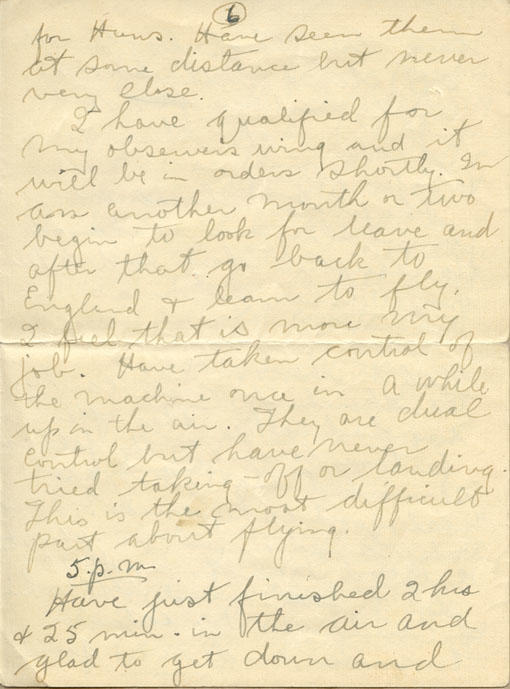 6
for Huns. Have seen them
at some distance but never
very close.
I have qualified for
my observers wing and it
will be in orders shortly. In
another month or two
begin to look for leave and
after that go back to
England & learn to fly.
I feel that is more my
job. Have taken control of
the machine once in a while
up in the air. They are dual
control but have never
tried taking-off or landing.
This is the most difficult
part about flying.
5.p.m.
Have just finished 2 hrs
& 25 min. in the air and
glad to get down and